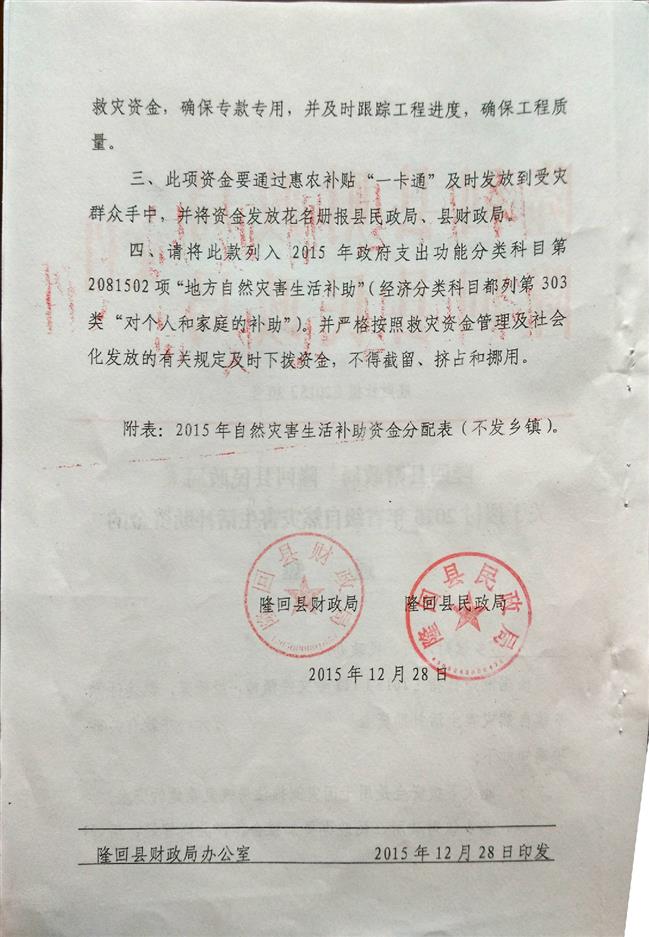 救灾资金，确保专款专用，并及时跟踪工程进度，确保工程质
量。
三、此项资金要通过惠农补贴“一卡通”及时发放到受灾
群众手中，并将资金发放花名册报县民政局、县财政局。
四、请将此款列入 2015 年政府支出功能分类科目第
2081502 项“地方自然灾害生活补助”（经济分类科目都列第 303
类“对个人和家庭的补助”）。并严格按照救灾资金管理及社会
化发放的有关规定及时下拨资金，不得截留、挤占和挪用。
附表：2015 年自然灾害生活补助资金分配表（不发乡镇）。
隆回县财政局
隆回县民政局
隆回县财政局 隆回县民政局
2015 年 12 月 28 日
隆回县财政局办公室 2015 年 12 月 28 日印发